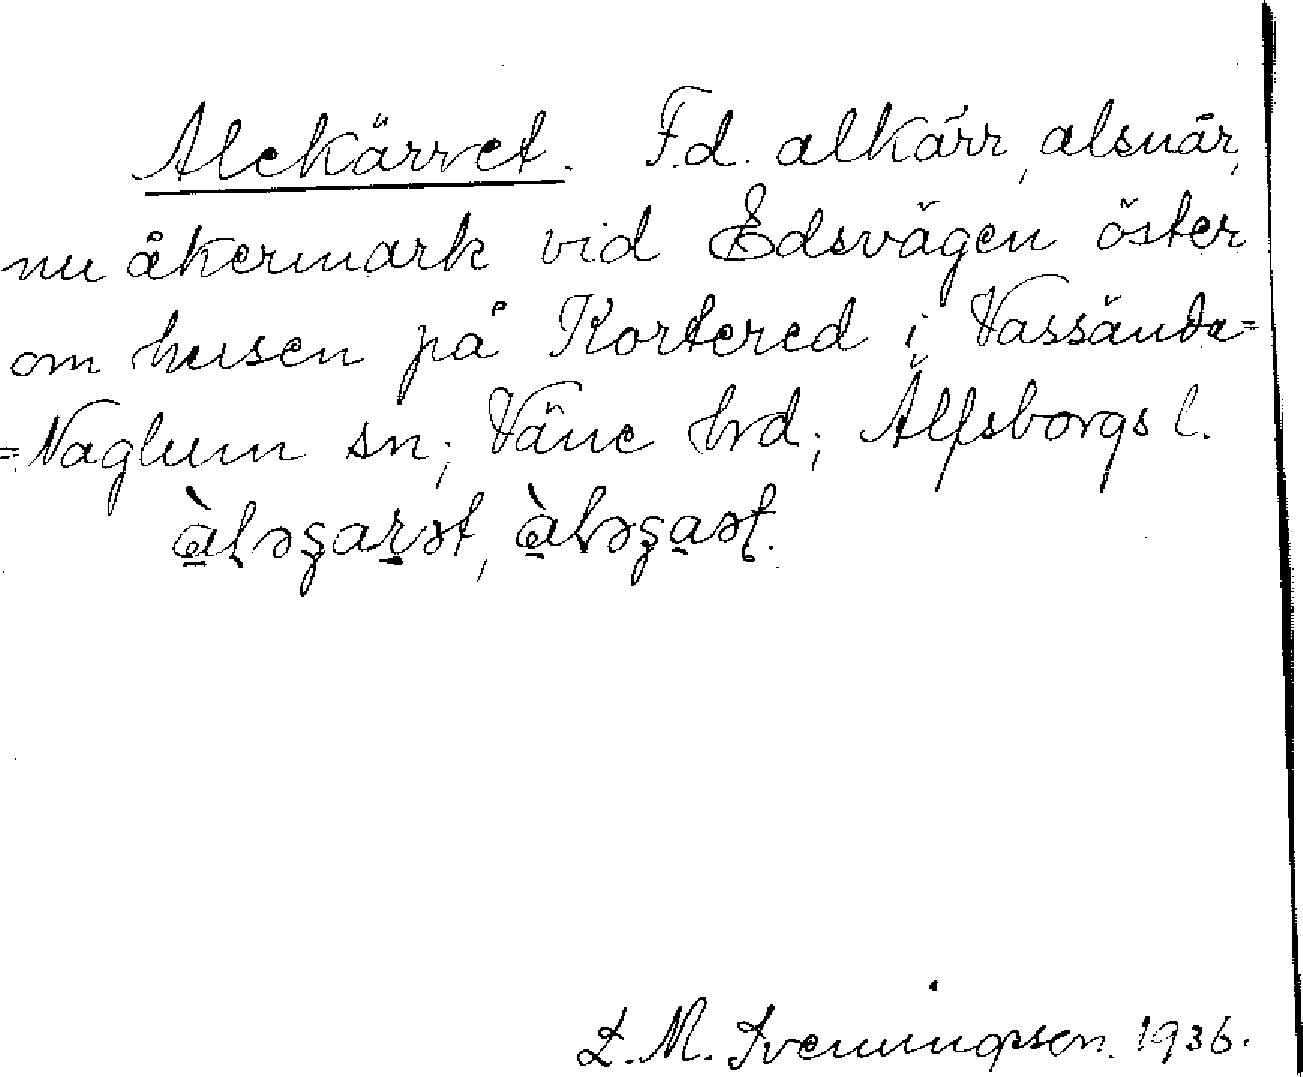 Alekärret. F.d. alkärr, alsnår,
nu åkermark vid Edsvägen öster
om husen på Kortered i Vassända-
-Naglum sn; Väne hrd; Älfsborgs l.
L. M. Svenungsson. 1936.